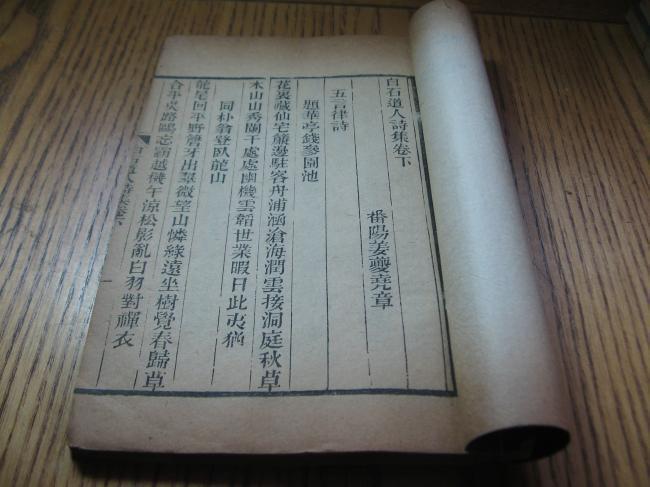 白石道人詩集卷下
番陽姜夔堯章
五言律詩
題華亭錢參園池
花裏藏仙宅簾邊駐客舟浦涵滄海潤雲接洞庭秋草
木山山秀闌干處處幽機雲韜世業暇日此夷猶
同朴翁登臥龍山
龍尾回平野簷牙出翠微望山憐綠遠坐樹覺春歸草
合平吳路鷗忘霸越機午涼松影亂白羽對禪衣